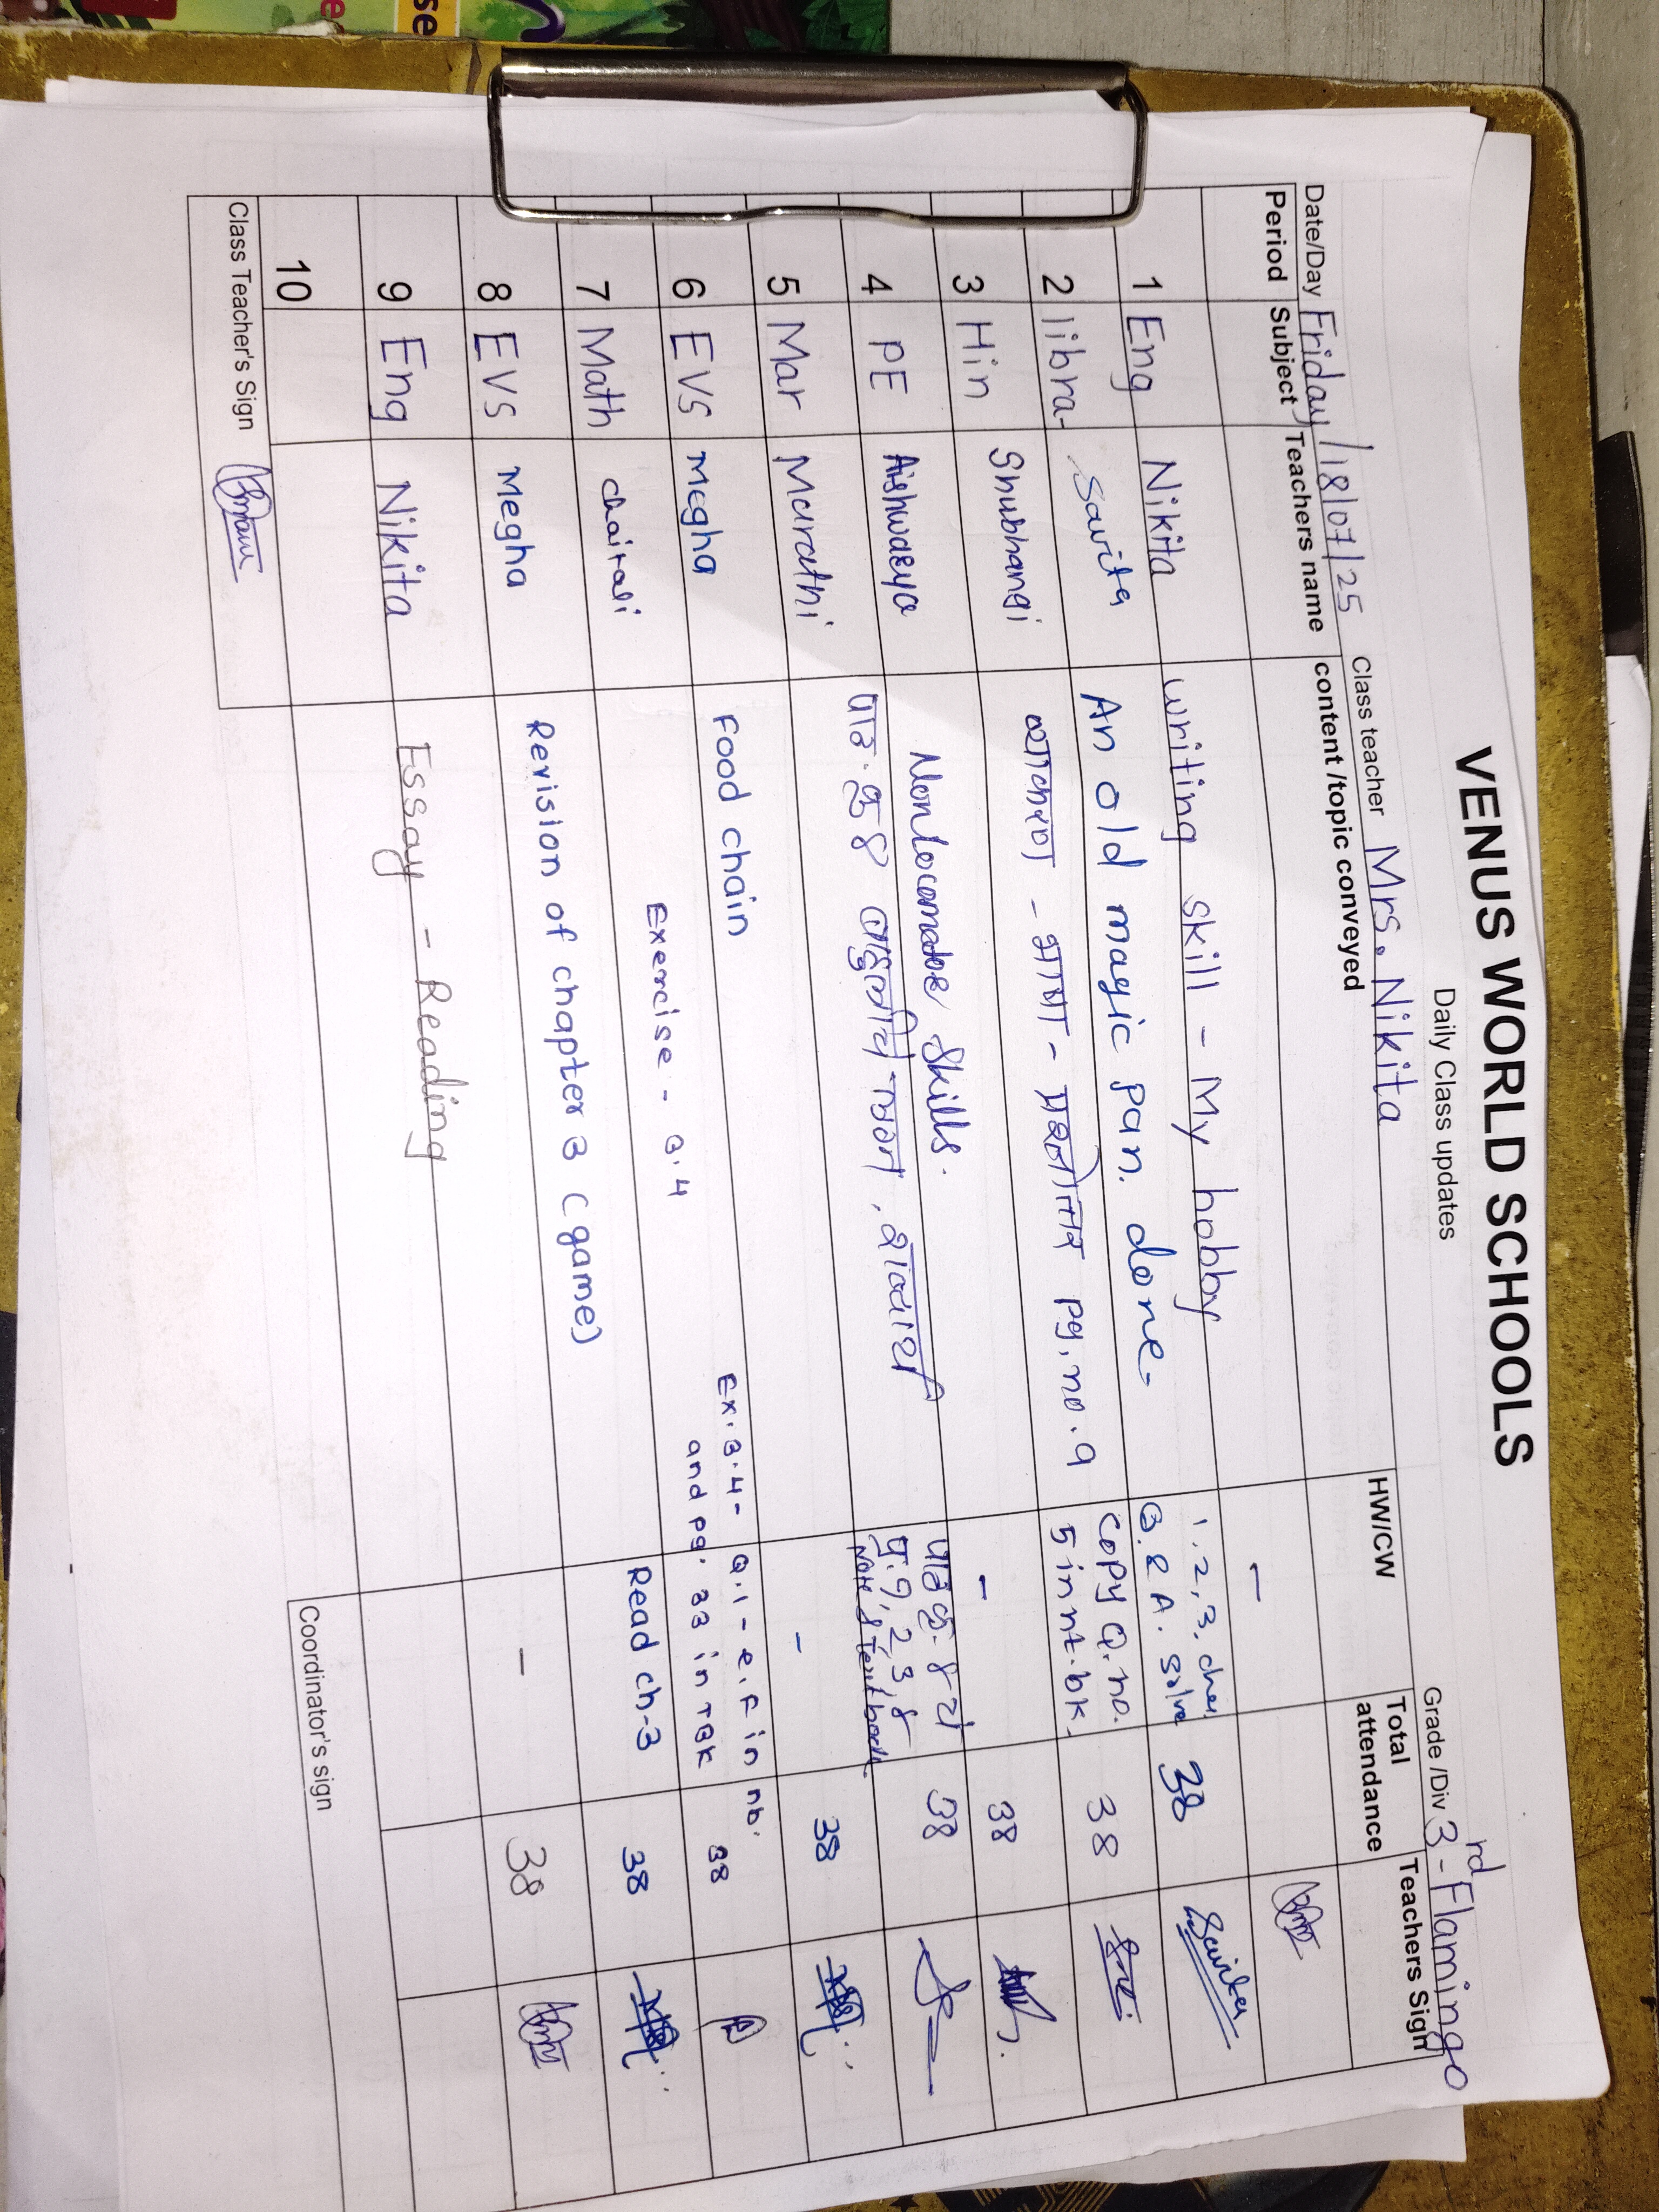 VENUS WORLD SCHOOLS
Daily Class updates
Date/Day Friday/18/07/25 Class teacher Mrs. Nikita Grade /Div 3rd - Flamingo
Period Subject Teachers name content /topic conveyed HW/CW Total attendance Teachers Sign
1 Eng Nikita writing skill - My hobby -
2 libra- Savita An old magic pan. done- 1, 2, 3. Q. & A. solve 38 Savita
3 Hin Shubhangi व्याकरण - भाषा - प्रश्नोत्तर pg. no. 9 copy Q. no. 5 in nt. bk. 38
4 PE Aishwarya Nonlocomotor skills. - 38
5 Mar Marathi पाठ क्र ४ वाचन, शब्दार्थ पाठ क्र. ४ चे प्र. १, 2, 3, ४ 38
6 EVS Megha Food chain - 38
7 Math chairali Exercise - 3.4 Ex. 3.4 - Q.1 - e, f in nb. and pg. 33 in TBK 38
8 EVS Megha Revision of chapter 3 (game) Read ch-3 38
9 Eng Nikita Essay - Reading - 38
10
Class Teacher's Sign Coordinator's sign
se
e